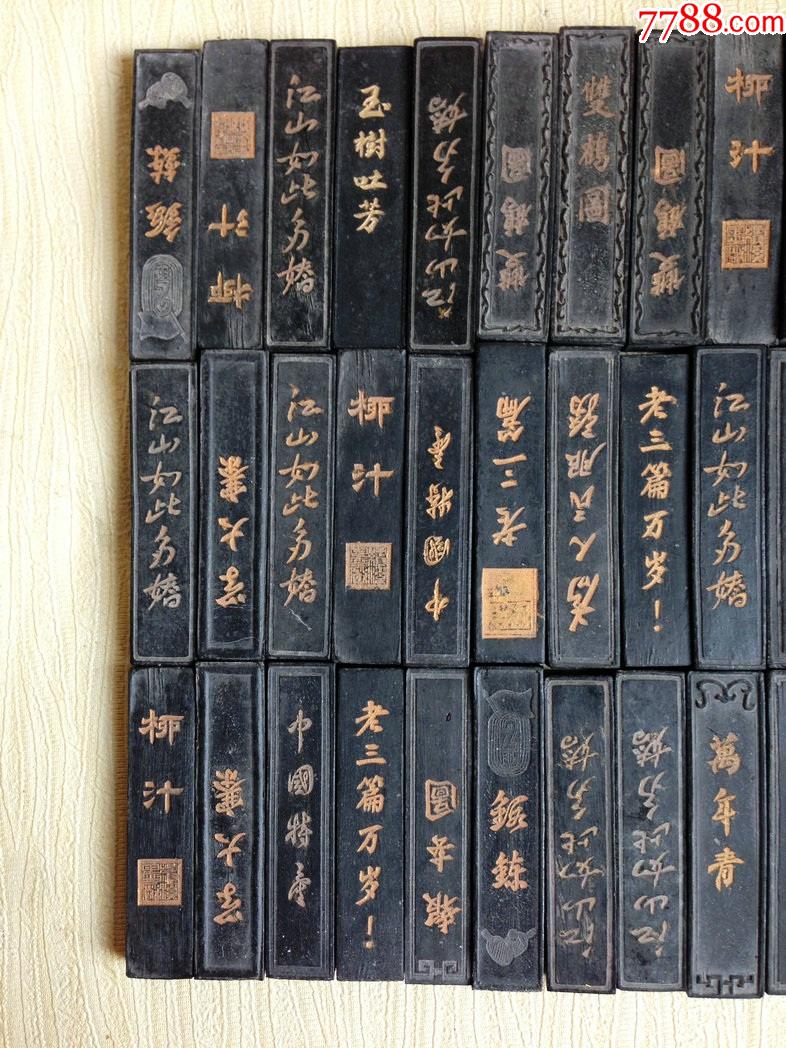 7788.com
柳汁
江山如此多娇
玉树吐芳
江山如此多娇
雙鶴圖
雙鶴圖
雙鶴圖
柳汁
江山如此多娇
学大寨
江山如此多娇
柳汁
中國特產
老三篇
为人民服務
老三篇万岁!
江山如此多娇
柳汁
学大寨
中國特產
老三篇万岁!
報喜圖
江山如此多娇
江山如此多娇
萬年青